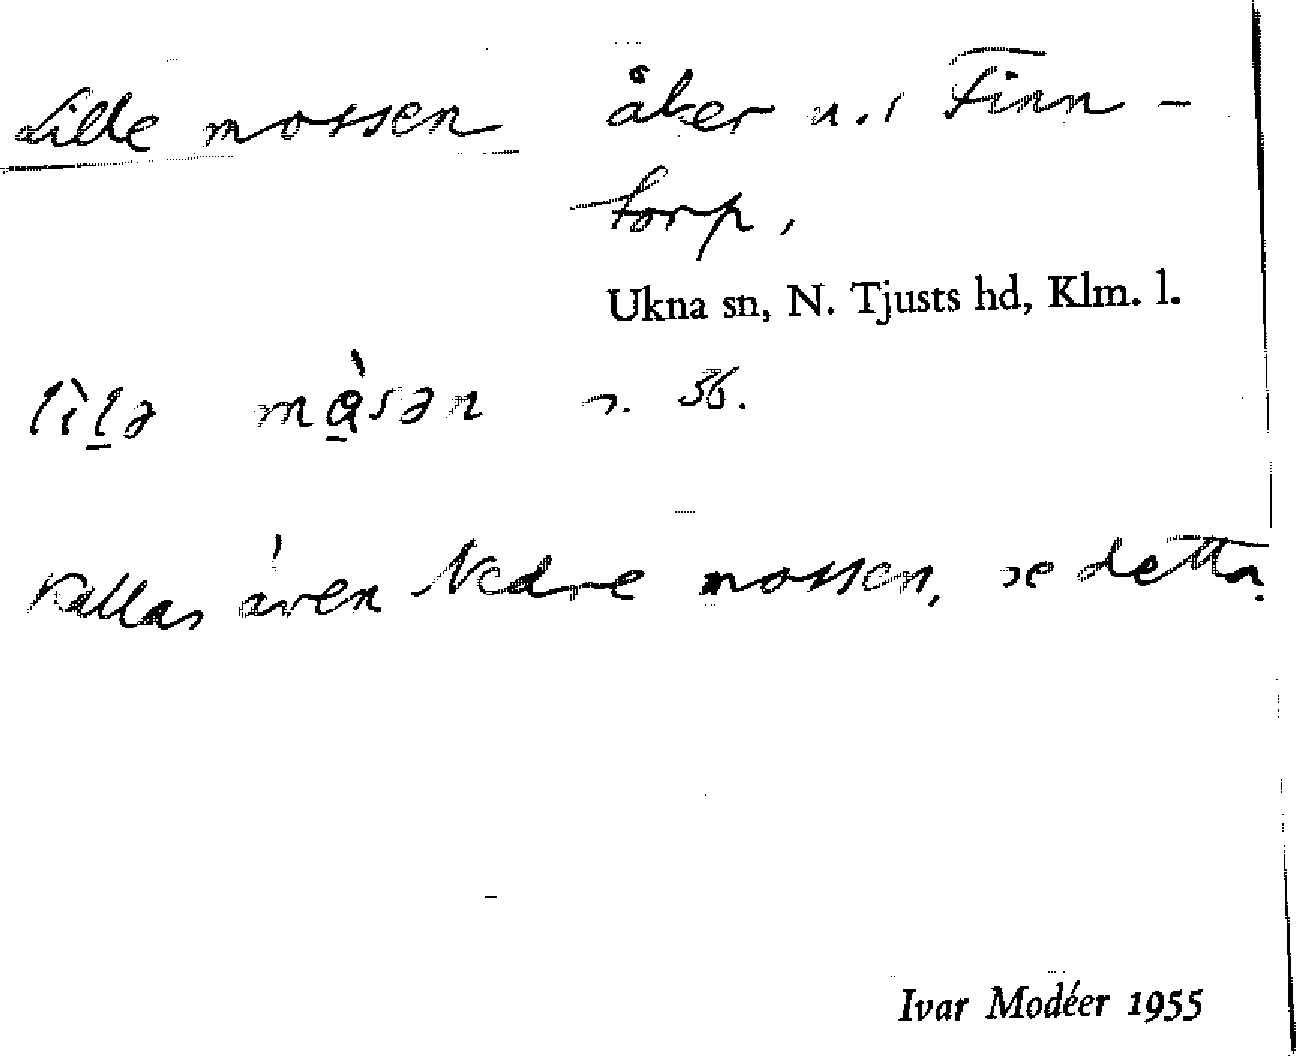 Lille mossen åker u. i Finn-
torp,
Ukna sn, N. Tjusts hd, Klm. l.
lìlə màsən s. 56.
Kallas även Nedre mossen, se detta.
Ivar Modéer 1955